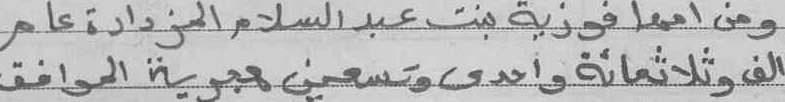 ومن امها فوزية بنت عبد السلام المزدادة عام
الف وثلاثمائة واحدى وتسعين هجرية الموافق